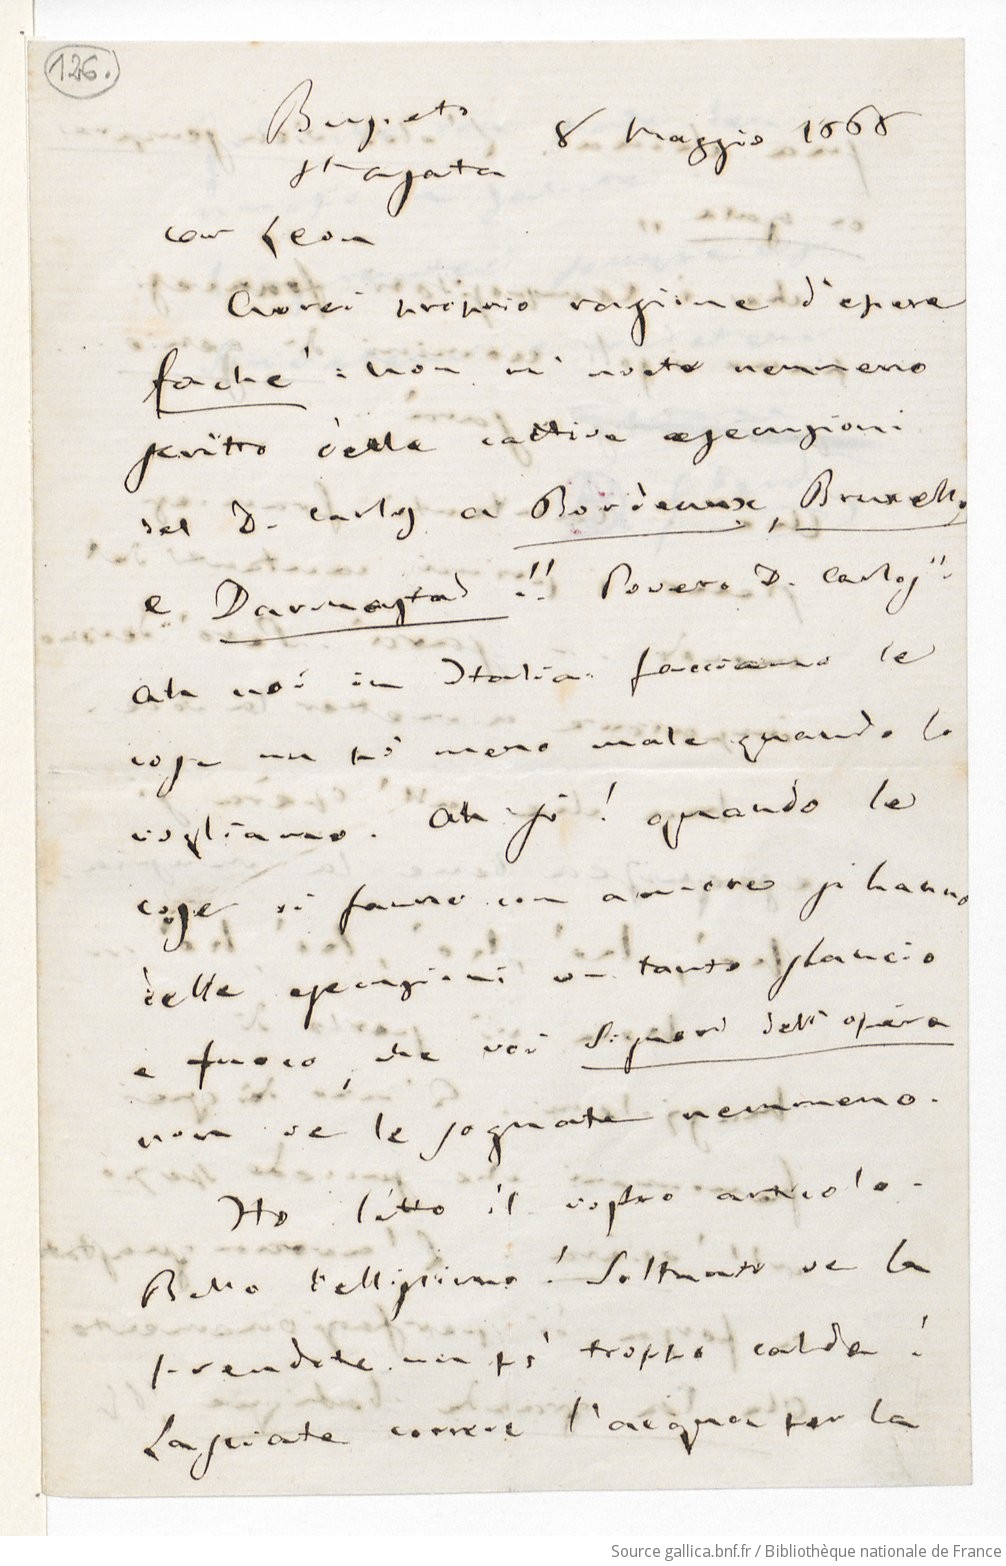 126.
Busseto
St Agata 8 Maggio 1868
Car Leon
Avrei proprio ragione d'essere
faché: non vi avete nemmeno
scritto delle cattive esecuzioni
del D. Carlos a Bordeaux, Bruxelles
e Darmastad!! Povero D. Carlos!!
Ah noi in Italia facciamo le
cose un pò meno male quando lo
vogliamo. Ah sì! quando le
cose si fanno con amore si hanno
delle esecuzioni con tanto slancio
e fuoco, che voi Signori dell'opéra
non ve le sognate nemmeno.
Ho letto il vostro articolo.
Bello bellissimo! Soltanto ve la
prendete un pò troppo calda!
Lasciate correre l'acqua per la
Source gallica.bnf.fr / Bibliothèque nationale de France